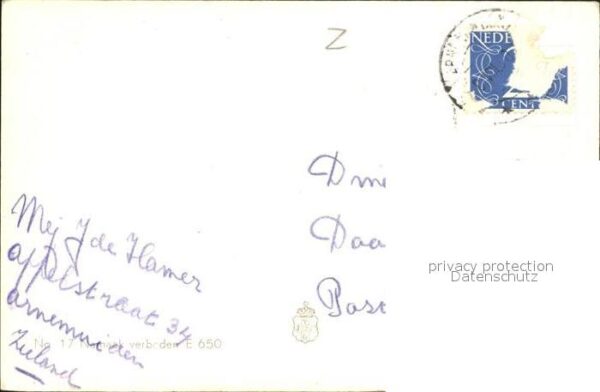 Z
NEDE
CENT
Mej J de Hamer
appelstraat 34
arnemuiden
Zeeland
Daa
Post
No. 17 Namaak verboden E 650
privacy protection
Datenschutz